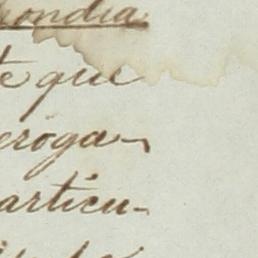 ondia
te que
eroga-
articu-